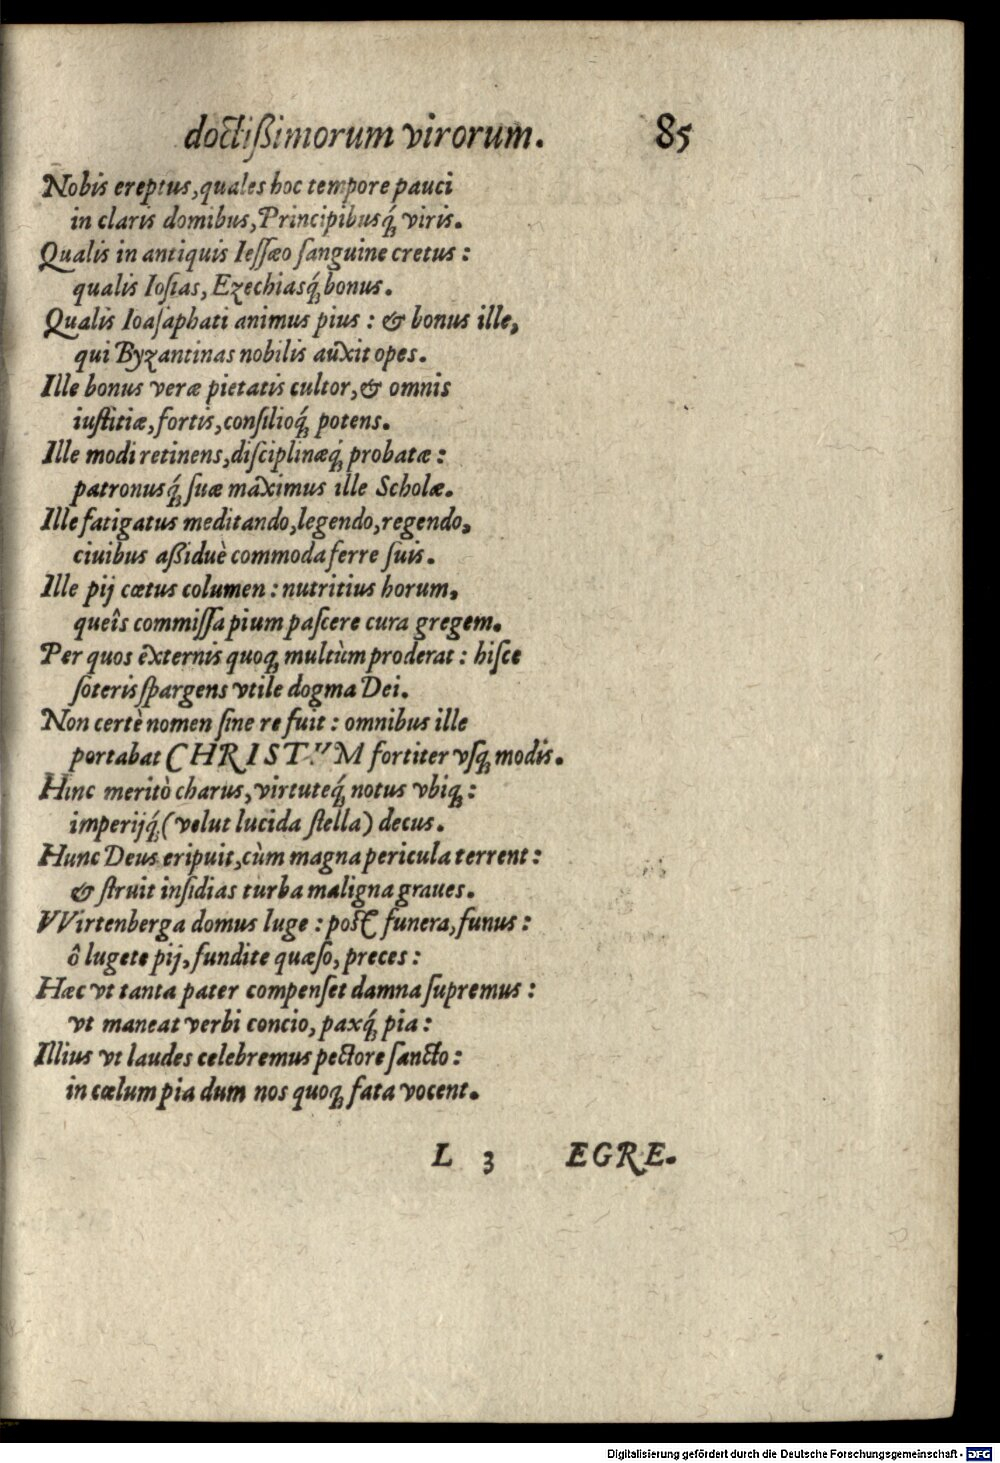 doctißimorum virorum. 85
Nobis ereptus, quales hoc tempore pauci
in claris domibus, Principibusq́; viris.
Qualis in antiquis Ieſſæo ſanguine cretus:
qualis Ioſias, Ezechiasq́; bonus.
Qualis Ioaſaphati animus pius: & bonus ille,
qui Byzantinas nobilis auxit opes.
Ille bonus veræ pietatis cultor, & omnis
iuſtitiæ, fortis, conſilioq́; potens.
Ille modi retinens, diſciplinæq́; probatæ:
patronusq́; ſuæ maximus ille Scholæ.
Ille fatigatus meditando, legendo, regendo,
ciuibus aßiduè commoda ferre ſuis.
Ille pij cœtus columen: nutritius horum,
queîs commiſſa pium paſcere cura gregem.
Per quos externis quoq; multùm proderat: hiſce
ſoteris ſpargens vtile dogma Dei.
Non certè nomen ſine re fuit: omnibus ille
portabat CHRISTVM fortiter vſq; modis.
Hinc meritò charus, virtuteq́; notus vbiq;:
imperijq́; (velut lucida ſtella) decus.
Hunc Deus eripuit, cùm magna pericula terrent:
& ſtruit inſidias turba maligna graues.
VVirtenberga domus luge: poſt funera, funus:
ô lugete pij, fundite quæſo, preces:
Hæc vt tanta pater compenſet damna ſupremus:
vt maneat verbi concio, paxq́; pia:
Illius vt laudes celebremus pectore ſancto:
in cœlum pia dum nos quoq; fata vocent.
L 3 EGRE.
Digitalisierung gefördert durch die Deutsche Forschungsgemeinschaft - DFG